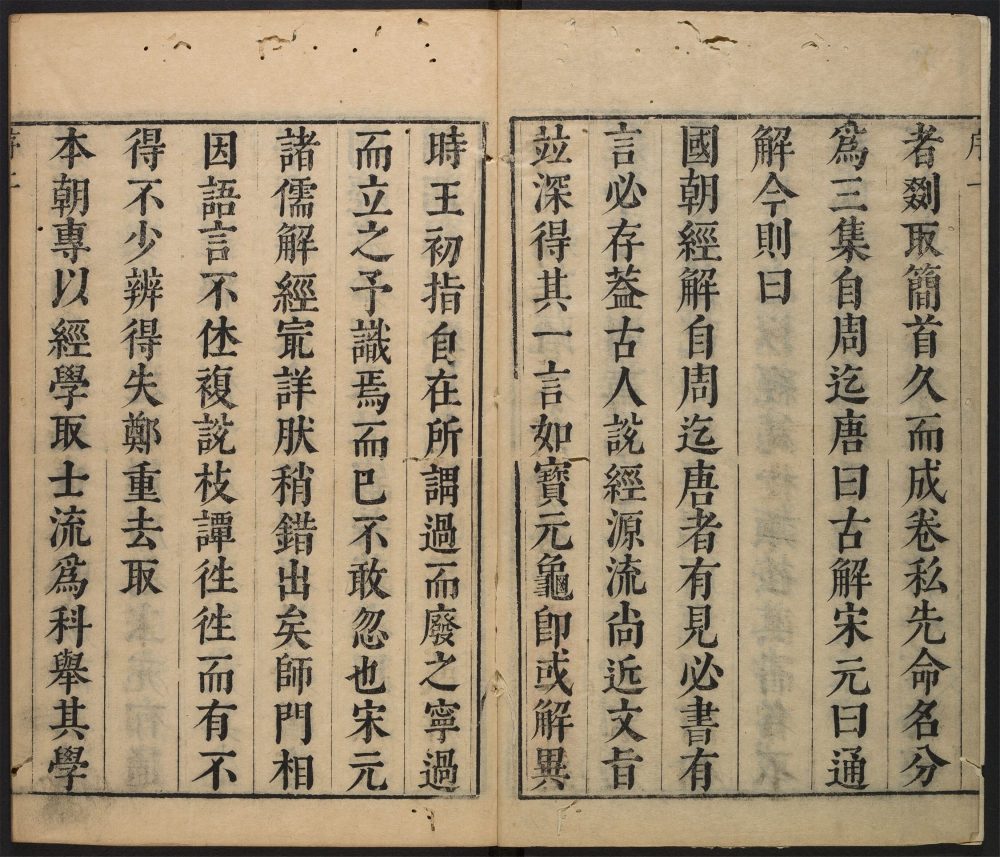 者劄取簡首久而成卷私先命名分
爲三集自周迄唐曰古解宋元曰通
解今則曰
國朝經解自周迄唐者有見必書有
言必存蓋古人說經源流尚近文旨
竝深得其一言如寶元龜卽或解異
時王初指自在所謂過而廢之寧過
而立之予識焉而已不敢忽也宋元
諸儒解經㝡詳肰稍錯出矣師門相
因語言不㤰複說枝譚徃徃而有不
得不少辨得失鄭重去取
本朝專以經學取士流爲科舉其學